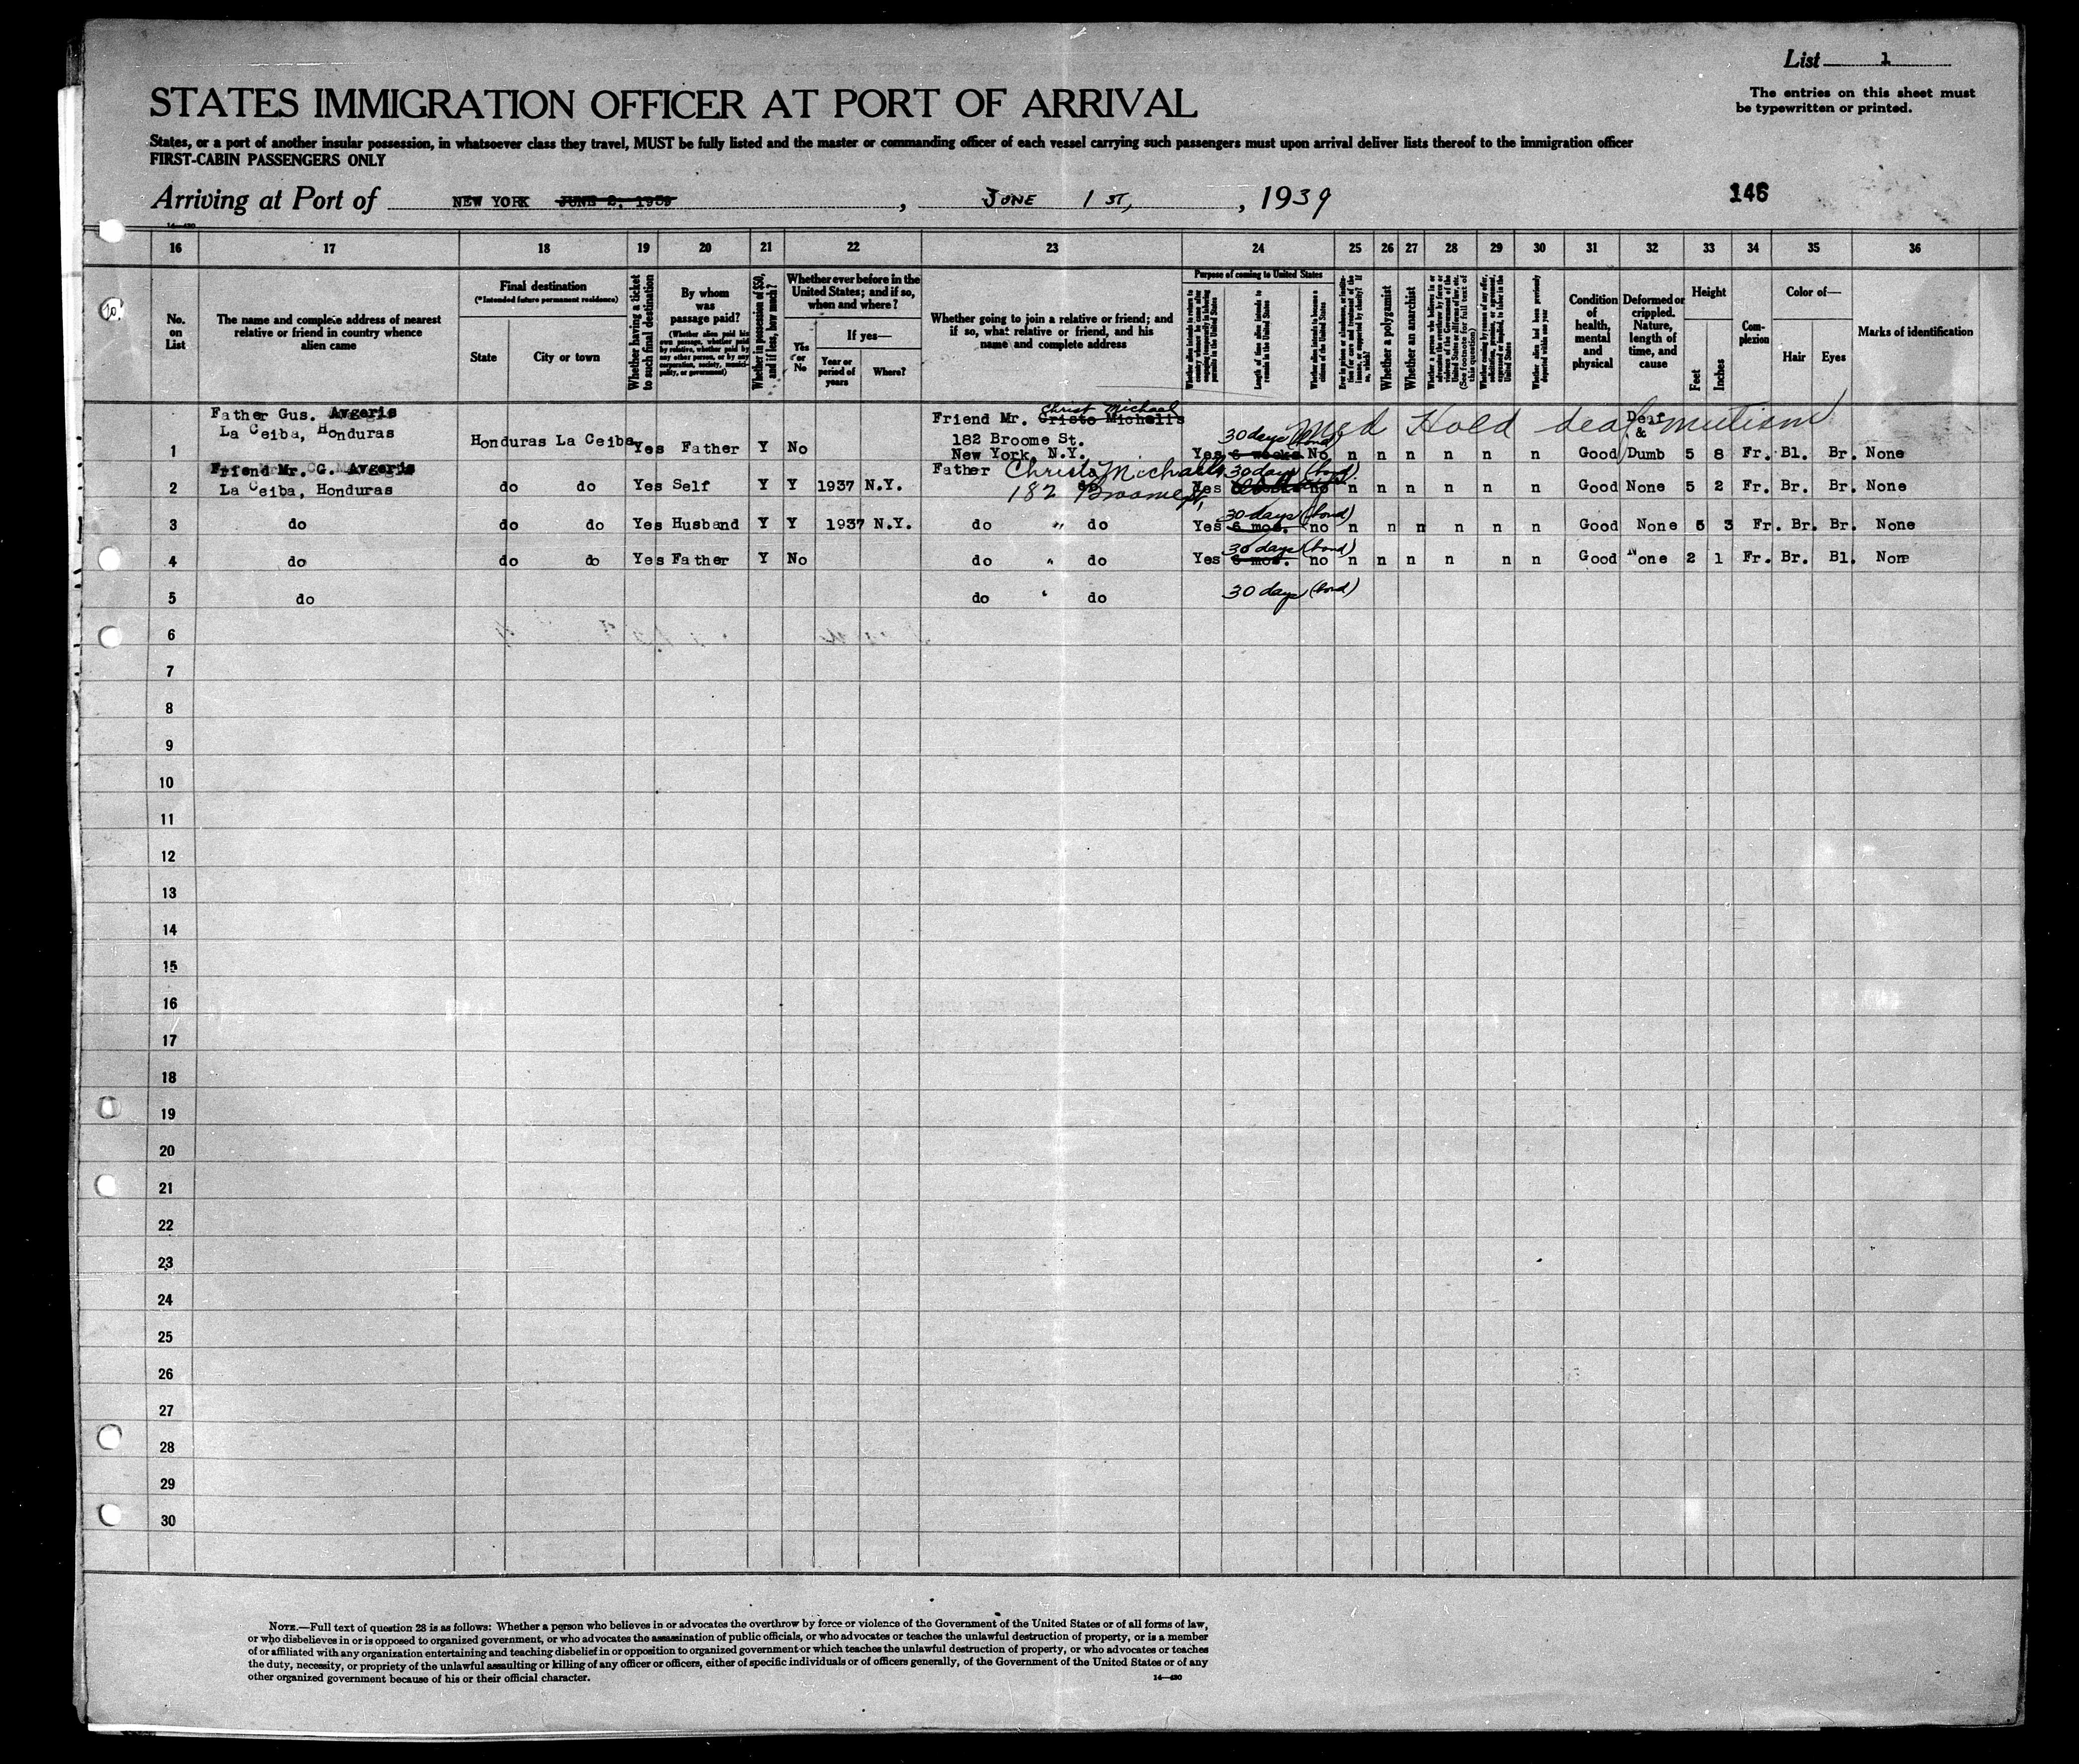 List 1
The entries on this sheet must
be typewritten or printed.
STATES IMMIGRATION OFFICER AT PORT OF ARRIVAL
States, or a port of another insular possession, in whatsoever class they travel, MUST be fully listed and the master or commanding officer of each vessel carrying such passengers must upon arrival deliver lists thereof to the immigration officer
FIRST-CABIN PASSENGERS ONLY
Arriving at Port of NEW YORK JUNE 2, 1939, JUNE 1 ST, , 1939 146
16 17 18 19 20 21 22 23 24 25 26 27 28 29 30 31 32 33 34 35 36
No. on List
The name and complete address of nearest relative or friend in country whence alien came
Final destination
(*Intended future permanent residence)
State City or town
Whether having a ticket to such final destination
By whom was passage paid?
(Whether alien paid his own passage, whether paid by relative, whether paid by any other person, or by any corporation, society, municipality, or government)
Whether in possession of $50, and if less, how much?
Whether ever before in the United States; and if so, when and where?
Yes or No
If yes—
Year or period of years Where?
Whether going to join a relative or friend; and if so, what relative or friend, and his name and complete address
Purpose of coming to United States
Length of time alien intends to remain in the United States
Whether alien intends to become a citizen of the United States
Whether a polygamist
Whether an anarchist
Whether alien had been previously deported within one year
Condition of health, mental and physical
Deformed or crippled. Nature, length of time, and cause
Height
Feet Inches
Complexion
Color of—
Hair Eyes
Marks of identification
Father Gus. Avgeris Friend Mr. Cristo Michelis Christ Michael Med Hold deaf mutism Deaf
La Ceiba, Honduras Honduras La Ceiba 182 Broome St. 30 days (bond) &
1 Yes Father Y No New York, N.Y. Yes 6 weeks No n n n n n n Good Dumb 5 8 Fr. Bl. Br. None
Friend Mr. G. Avgeris Father Christ Michaels 30 days (bond)
2 La Ceiba, Honduras do do Yes Self Y Y 1937 N.Y. 182 Broome St, Yes no n n n n n n Good None 5 2 Fr. Br. Br. None
30 days (bond)
3 do do do Yes Husband Y Y 1937 N.Y. do " do Yes 6 mos. no n n n n n n Good None 5 3 Fr. Br. Br. None
30 days (bond)
4 do do do Yes Father Y No do " do Yes 6 mos. no n n n n n n Good None 2 1 Fr. Br. Bl. None
5 do do " do 30 days (bond)
6
7
8
9
10
11
12
13
14
15
16
17
18
19
20
21
22
23
24
25
26
27
28
29
30
NOTE.—Full text of question 28 is as follows: Whether a person who believes in or advocates the overthrow by force or violence of the Government of the United States or of all forms of law,
or who disbelieves in or is opposed to organized government, or who advocates the assassination of public officials, or who advocates or teaches the unlawful destruction of property, or is a member
of or affiliated with any organization entertaining and teaching disbelief in or opposition to organized government or which teaches the unlawful destruction of property, or who advocates or teaches
the duty, necessity, or propriety of the unlawful assaulting or killing of any officer or officers, either of specific individuals or of officers generally, of the Government of the United States or of any
other organized government because of his or their official character.
14—430